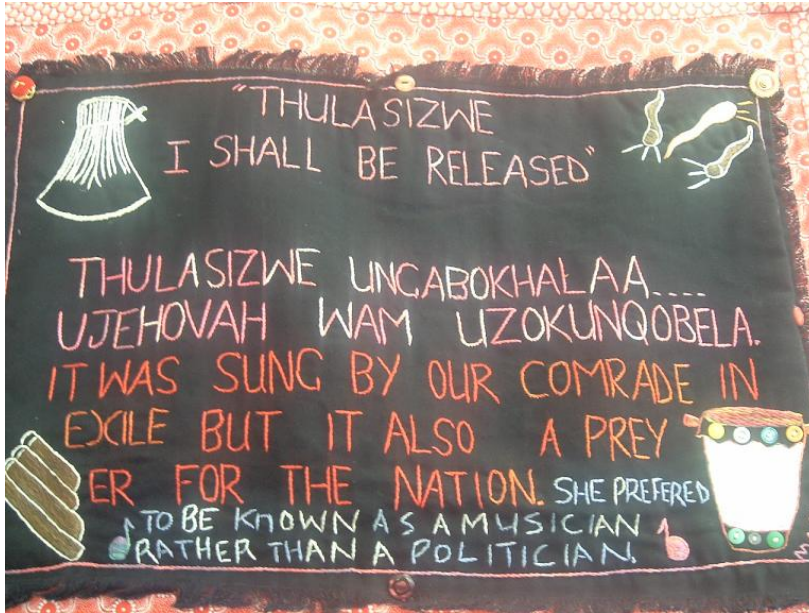 "THULASIZWE
I SHALL BE RELEASED"
THULASIZWE UNGABOKHALAA....
UJEHOVAH WAM UZOKUNQOBELA.
IT WAS SUNG BY OUR COMRADE IN
EXILE BUT IT ALSO A PREY
ER FOR THE NATION. SHE PREFERED
TO BE KNOWN AS A MUSICIAN
RATHER THAN A POLITICIAN.